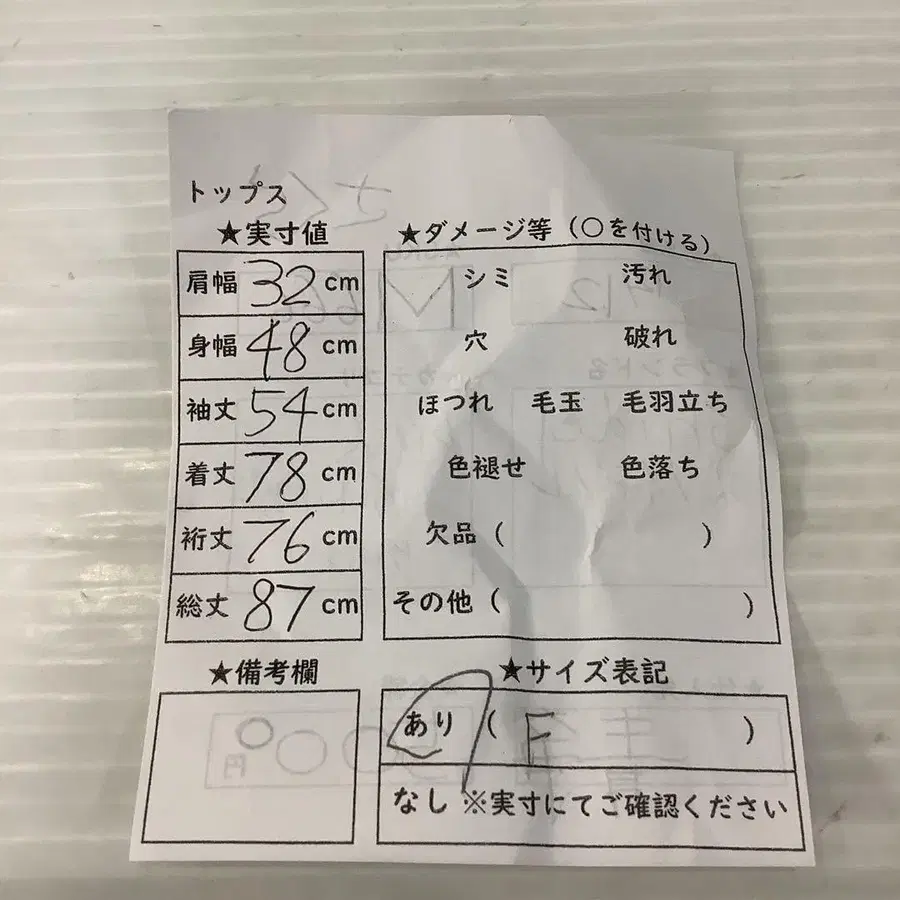 トップス
★実寸値
肩幅 32 cm
身幅 48 cm
袖丈 54 cm
着丈 78 cm
裄丈 76 cm
総丈 87 cm
★備考欄
★ダメージ等（〇を付ける）
シミ 汚れ
穴 破れ
ほつれ 毛玉 毛羽立ち
色褪せ 色落ち
欠品（ ）
その他（ ）
★サイズ表記
あり（ F ）
なし ※実寸にてご確認ください